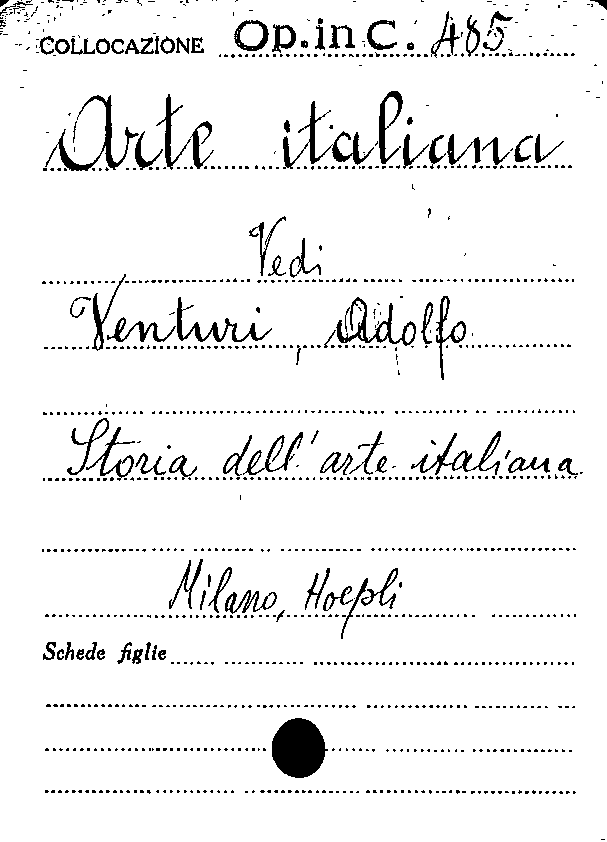 COLLOCAZIONE Op. in C. 485
Arte italiana
Vedi
Venturi, Adolfo
Storia dell'arte italiana
Milano, Hoepli
Schede figlie